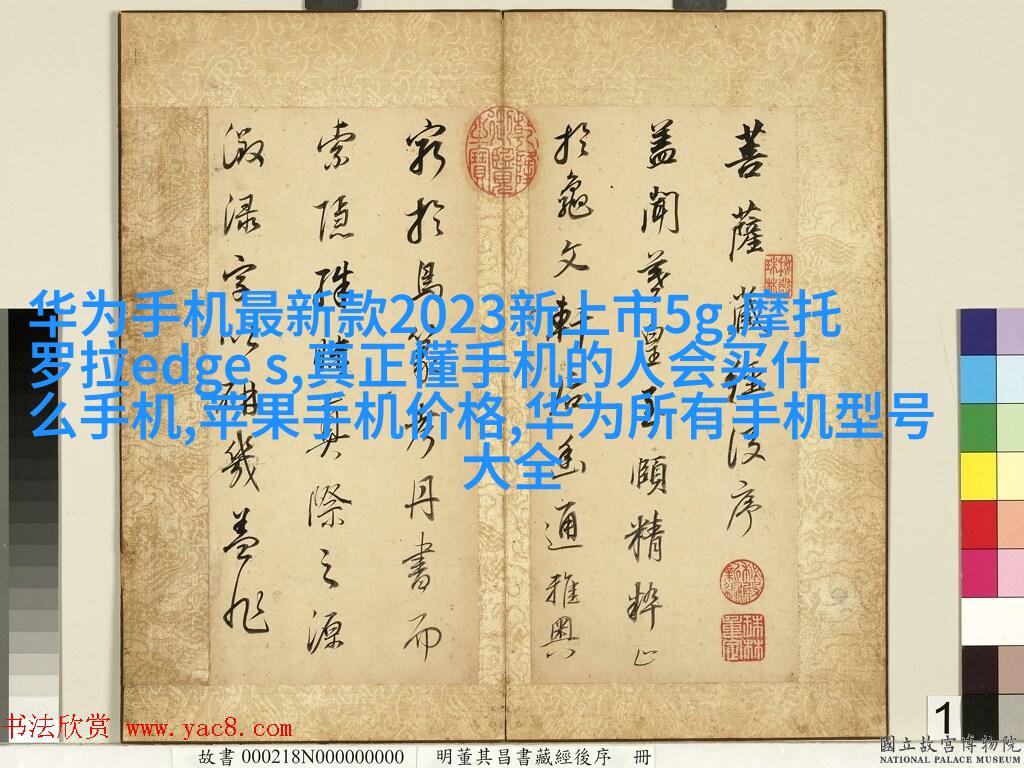 华为手机最新款2023新上市5g,摩托
罗拉edge s,真正懂手机的人会买什
么手机,苹果手机价格,华为所有手机型号
大全
菩薩藏經後序
蓋聞羲皇至賾精粹止
於龜文軒后幽通雅奧
窮於鳥篆考丹書而
索隱其際之源
字以幾蓋非
书法欣赏 www.yac8.com
故書 000218N000000000 明董其昌書藏經後序 冊
1
國立故宮博物院
NATIONAL PALACE MUSEUM